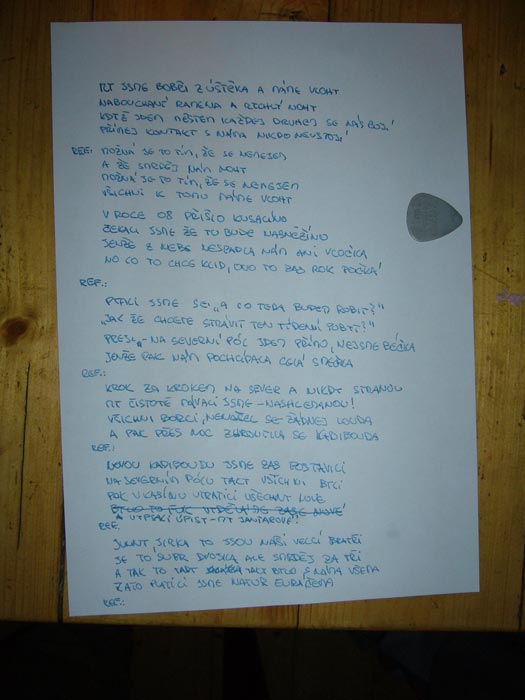 MY JSME BOBŘI Z ÚŠTĚKA A MÁME VLOHY
NABOUCHANÝ RAMENA A RYCHLÝ NOHY
KDYŽ JDEM MĚSTEM KAŽDEJ DRUHEJ SE NÁS BOJÍ
PŘÍMEJ KONTAKT S NÁMA NIKDO NEUSTOJÍ
REF: MOŽNÁ JE TO TÍM, ŽE SE NEMEJEM
A ŽE SMRDĚJ NÁM NOHY
MOŽNÁ JE TO TÍM, ŽE SE NEMEJEM
VŠICHNI K TOMU MÁME VLOHY
V ROCE 08 PŘIŠLO KUSACÍNO
ČEKALI JSME ŽE TU BUDE NASNĚŽÍNO
JENŽE Z NEBE NESPADLA NÁM ANI VLOČKA
NO CO TO CHCE KLID, ONO TO ZAS ROK POČKÁ
REF.:
PTALI JSME SE: „A CO TEDA BUDEM ROBIT?"
„JAK ŽE CHCETE STRÁVIT TEN TÝDENÍ POBYT?"
PREJ: - NA SEVERNÍ PÓL JDEM PŘÍMO, NEJSME BÉČKA
JENŽE PAK NÁM POCHCÍPALA CELÁ SMEČKA
REF.:
KROK ZA KROKEM NA SEVER A NIKDY STRANOU
MY ČISTOTĚ MÁVALI JSME - NASHLEDANOU!
VŠICHNI BORCI, NENAŠEL SE ŽÁDNEJ LOUDA
A PAK PŘES NOC ZHROUTILA SE KADIBOUDA
REF.:
NOVOU KADIBOUDU JSME ZAS POSTAVILI
NA SEVERNÍM PÓLU TADY VŠICHNI BYLI
POK V KASÍNU UTRATILI VŠECHNY LOVE
A VYPRALI ÚPIST - MY SANITAROVÉ!
REF.
JUMNY JIRKA TO JSOU NAŠI VELCÍ BRATŘI
JE TO SUPR DVOJKA ALE SMRDĚJ ZA TŘI
A TAK TO TADY BYLO S NÁMA VŠEMA
ZATO PLATILI JSME NATUR EURÁČEMA
REF.: